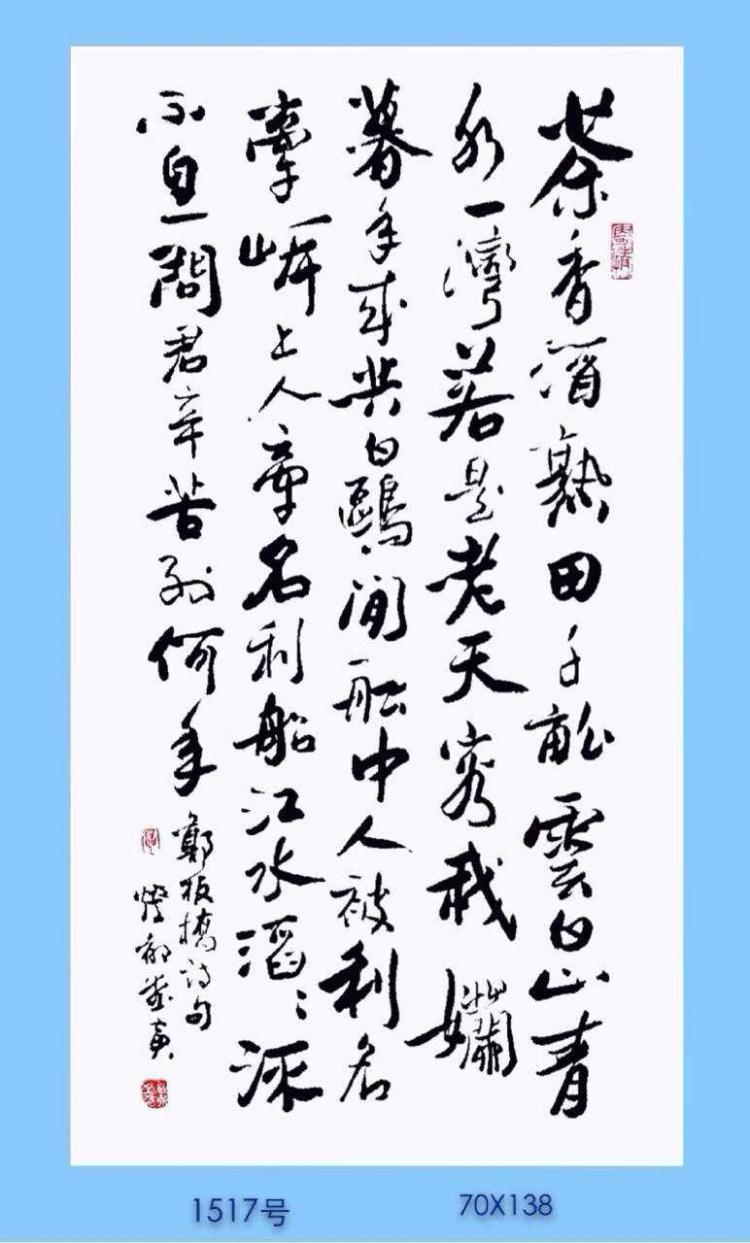 茶香酒熟田千畝雲白山青
水一灣若是老天容我懶
暮年來共白鷗閒船中人被利名
牽岸上人牽名利船江水滔〻流
不息問君辛苦到何年
鄭板橋詩句
1517号
70X138